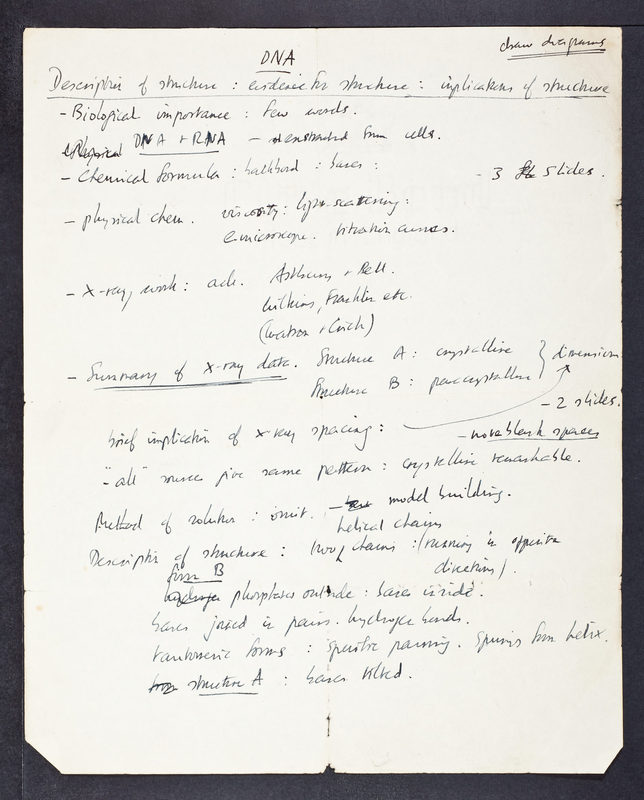 draw diagrams
DNA
Description of structure : evidence for structure : implications of structure
- Biological importance : few words.
DNA + RNA - extracted from cells.
- Chemical formula : backbone : bases :
- 3 slides.
- physical chem. viscosity : light-scattering :
e-microscope. titration curves.
- X-ray work : ack. Astbury + Bell.
Wilkins, Franklin etc.
(Watson + Crick)
- Summary of X-ray data. Structure A : crystalline } dimensions
Structure B : paracrystalline
- 2 slides.
brief implication of X-ray spacing :
- note blank spaces
- "all" sources give same pattern : crystalline remarkable.
Method of solution : omit. - model building.
helical chains
Description of structure : two chains : (running in opposite
directions).
form B
phosphates outside : bases inside.
bases joined in pairs. hydrogen bonds.
tautomeric forms : specific pairing. from helix.
structure A : bases tilted.